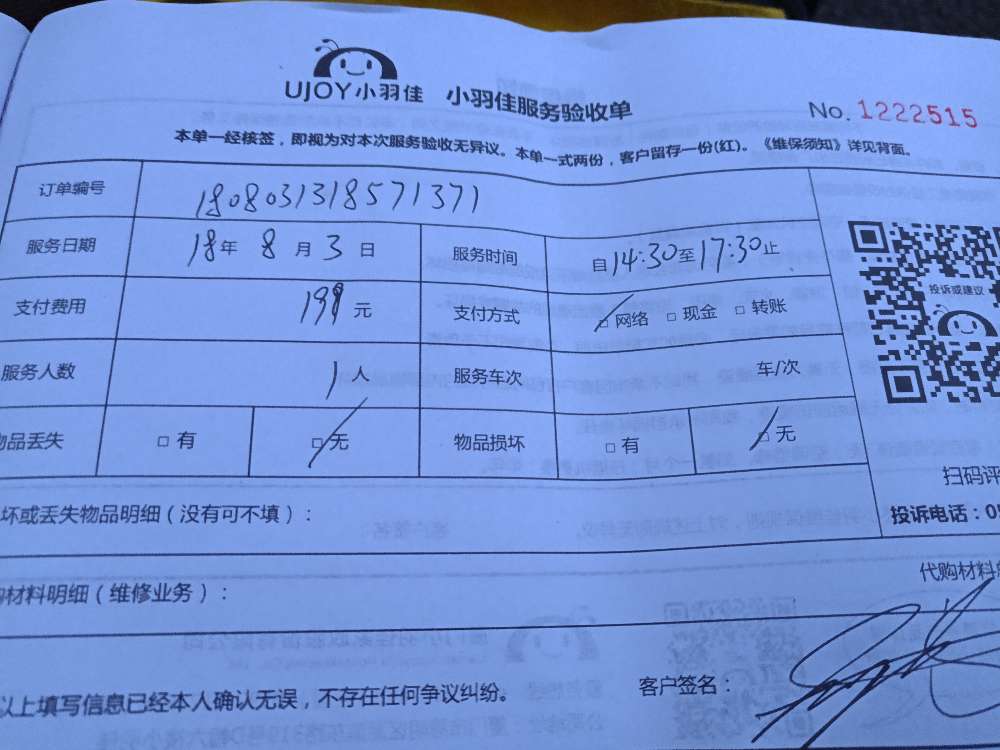 UJOY小羽佳 小羽佳服务验收单
No. 1222515
本单一经核签，即视为对本次服务验收无异议。本单一式两份，客户留存一份(红)。《维保须知》详见背面。
订单编号 1808031318571371
服务日期 18年 8月 3日 服务时间 自14:30至17:30止
投诉或建议
支付费用 199元 支付方式 □网络 □现金 □转账
服务人数 1人 服务车次 车/次
物品丢失 □有 □无 物品损坏 □有 □无
扫码评
坏或丢失物品明细（没有可不填）：
投诉电话：05
代购材料
材料明细（维修业务）：
以上填写信息已经本人确认无误，不存在任何争议纠纷。 客户签名：